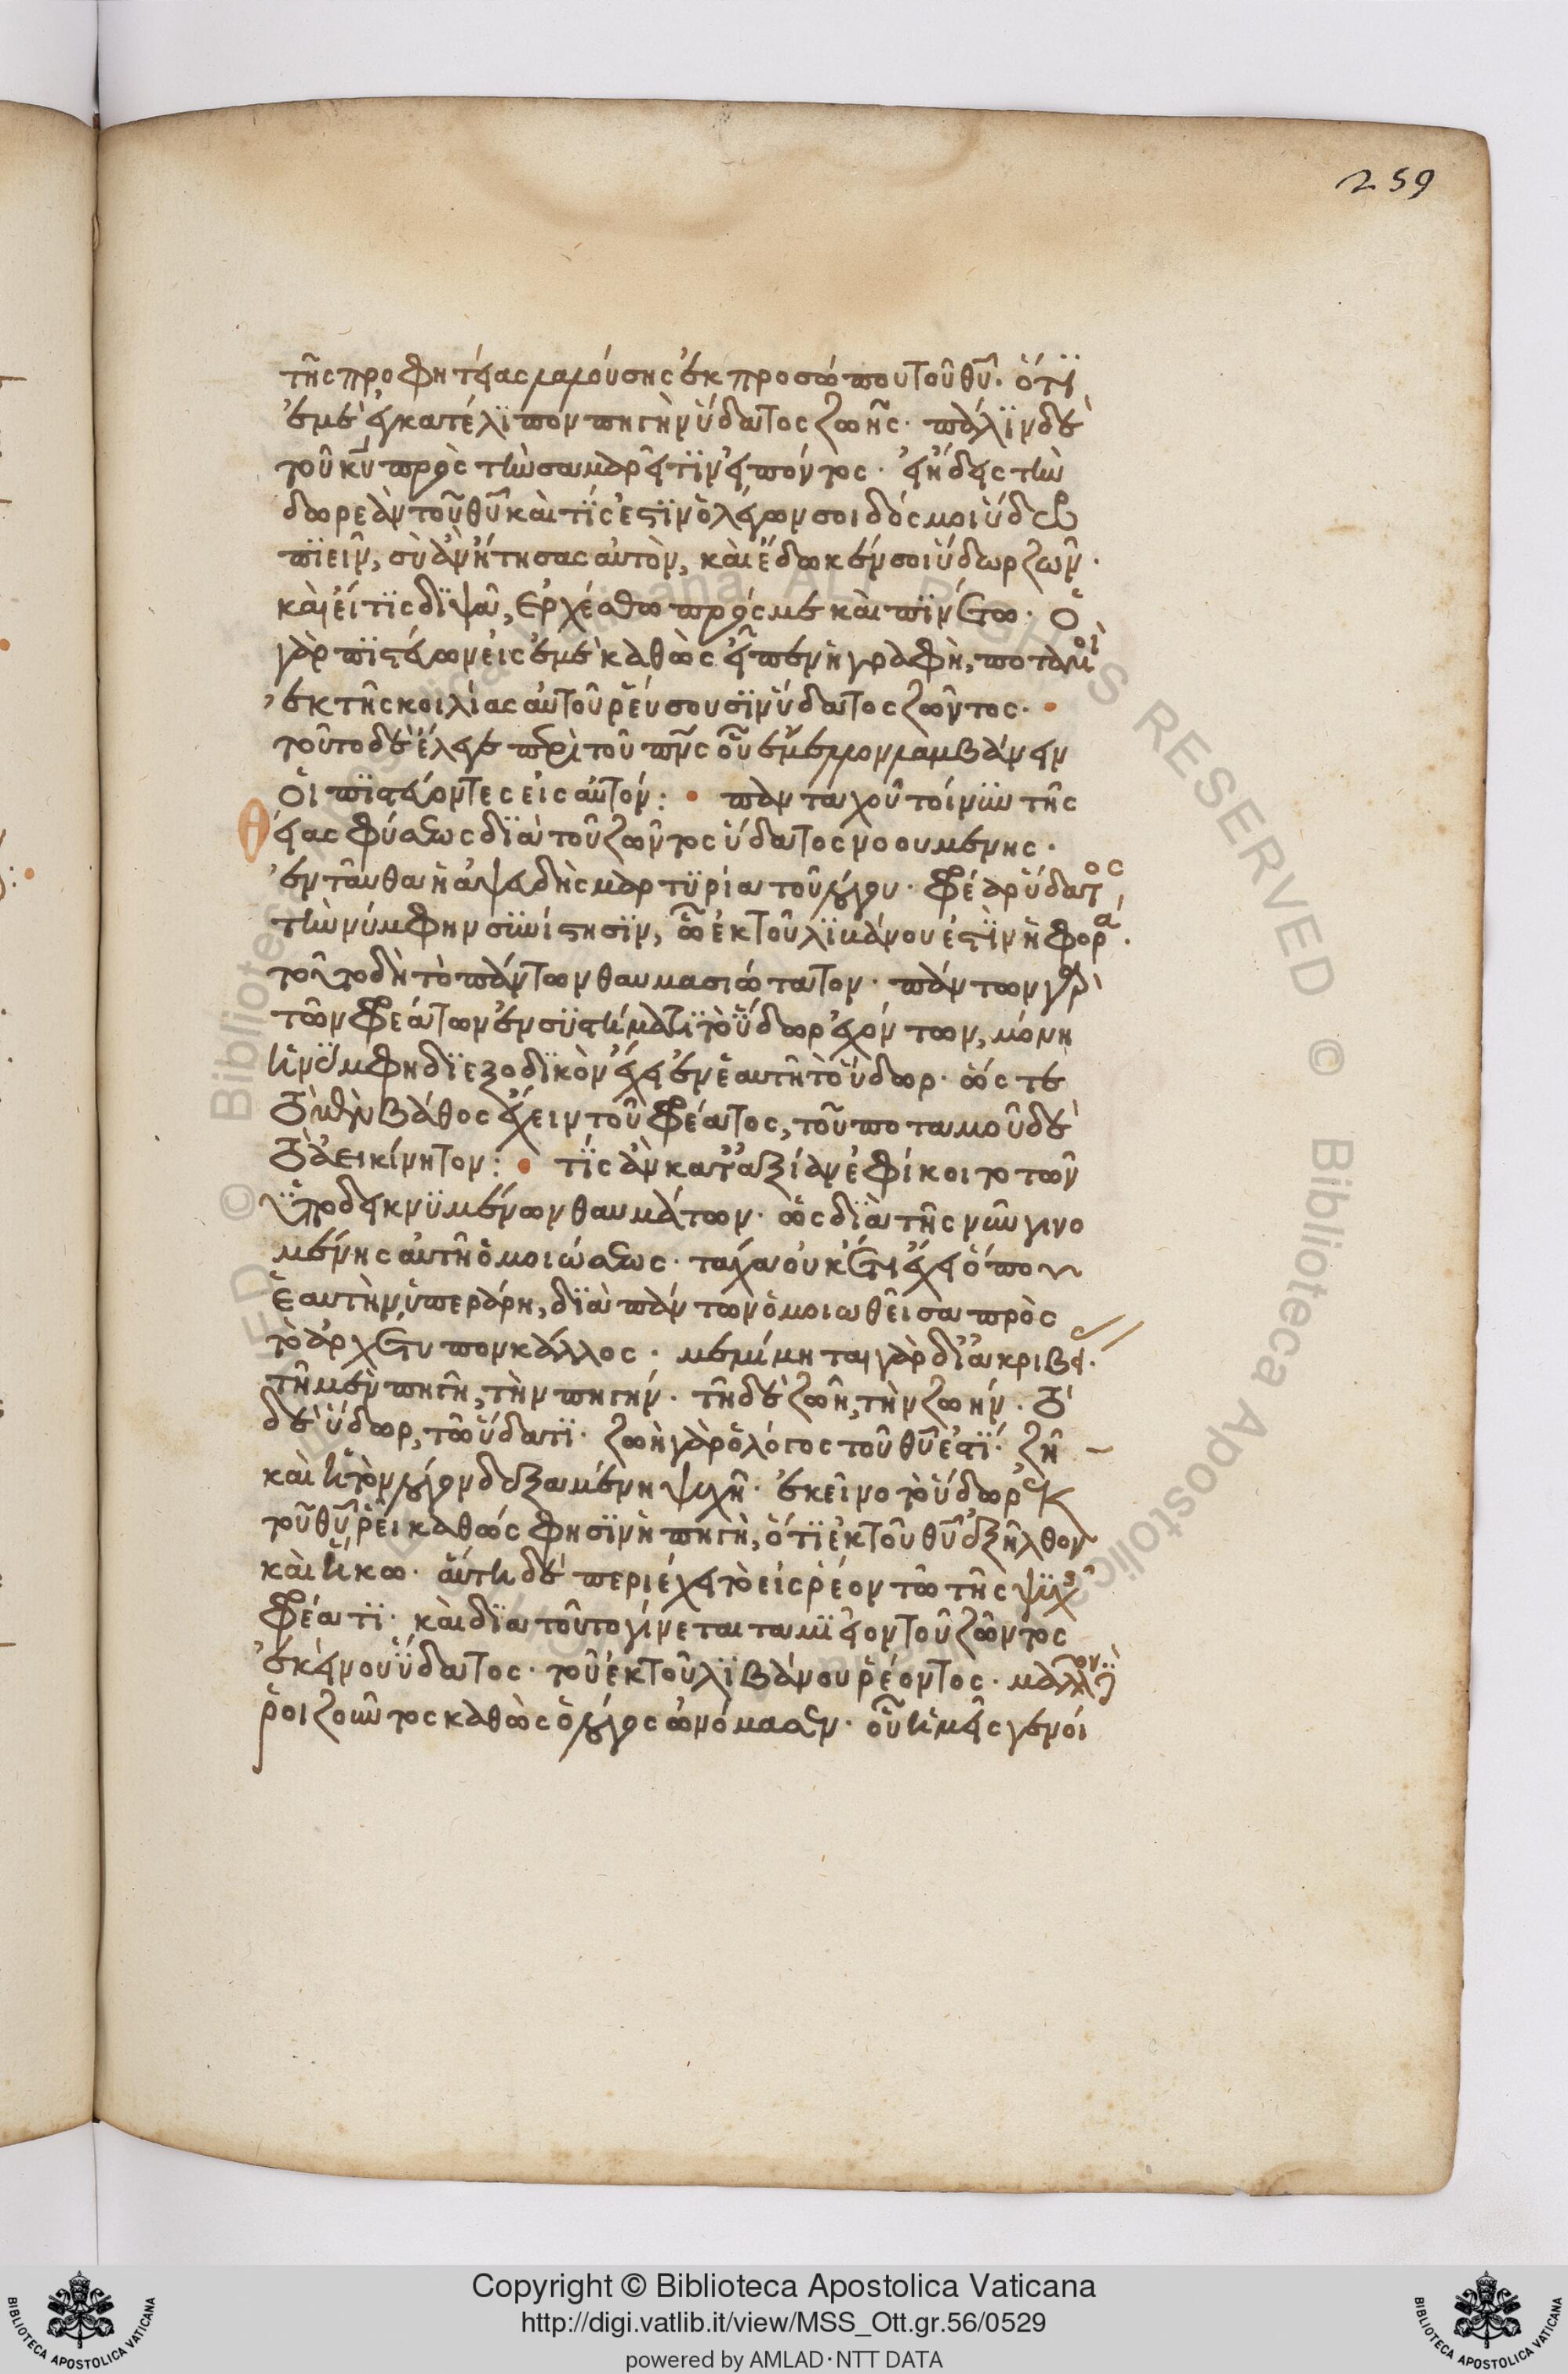 259
τῆς προφητείας λαλούσης ἐκ προσώπου τοῦ θυ̅. ὅτϊ
ἐμὲ ἐγκατέλϊπον πηγὴν ὕδατος ζωῆς. πάλϊν δὲ
τοῦ κυ̅ πρὸς τὴν σαμαρείτϊν εἰπόντος. εἰ ἤδεις τὴν
δωρεὰν τοῦ θυ̅ καὶ τίς ἐστϊν ὁ λέγων σοι δός μοι ὕδωρ
πϊεῖν, σὺ ἂν ᾔτησας αὐτὸν, καὶ ἔδωκέν σοι ὕδωρ ζῶν.
καὶ εἴ τϊς δϊψᾶ, ἐρχέσθω πρός με καὶ πϊνέτω. ὁ
γὰρ πϊστεύων εἰς ἐμὲ καθὼς εἶπεν ἡ γραφὴ, ποταμοὶ
ἐκ τῆς κοιλίας αὐτοῦ ῥεύσουσϊν ὕδατος ζῶντος.
τοῦτο δὲ ἔλεγε περὶ τοῦ πνς̅ οὗ ἔμελλον λαμβάνειν
οἱ πϊστεύοντες εἰς αὐτόν: πανταχοῦ τοίνϋν τῆς
θείας φύσεως δϊὰ τοῦ ζῶντος ὕδατος νοουμένης.
ἐνταῦθα ἡ ἀψευδὴς μαρτϋρία τοῦ λόγου. φρέαρ ὕδατος
τὴν νύμφην σϋνίστησϊν, ὧ ἐκ τοῦ λϊβάνου ἐστϊν ἡ φορά.
τοῦτο δὴ τὸ πάντων θαυμασιώτατον. πάντων γὰρ
τῶν φρεάτων ἐν σϋστήματϊ τὸ ὕδωρ ἐχόντων, μόνη
ἡ νύμφη δϊεξοδϊκὸν ἔχει ἐν ἑαυτῆ τὸ ὕδωρ. ὥς τε
τὸ μὲν βάθος ἔχειν τοῦ φρέατος, τοῦ ποταμοῦ δὲ
τὸ ἀεικίνητον: τίς ἂν κατ' ἀξίαν ἐφίκοιτο τῶν
ὑποδεικνϋμένων θαυμάτων. ὡς δϊὰ τῆς νῦν γινο
μένης αὐτῆ ὁμοιώσεως. τάχα οὐκέτι ἔχει ὅπου
ἑαυτὴν ὑπεράρη, δϊὰ πάντων ὁμοιωθεῖσα πρὸς
τὸ ἀρχέτυπον κάλλος. μεμίμηται γὰρ δι' ἀκριβεί.
τῆ μὲν πηγῆ, τὴν πηγήν. τῆ δὲ ζωῆ, τὴν ζωήν. τὸ
δὲ ὕδωρ, τῶ ὕδατϊ. ζωὴ γὰρ ὁ λόγος τοῦ θυ̅ ἐστϊ. ζῆ
καὶ ἡ τὸν λόγον δεξαμένη ψυχῆ. ἐκεῖνο τὸ ὕδωρ ἐκ
τοῦ θυ̅ ῥέει καθώς φησϊν ἡ πηγὴ, ὅτϊ ἐκ τοῦ θυ̅ ἐξῆλθον
καὶ ἥκω. αὕτη δὲ περιέχει τὸ εἰσρέον τῶ τῆς ψϋχῆς
φρέατϊ. καὶ δϊὰ τοῦτο γίνεται ταμϊεῖον τοῦ ζῶντος
ἐκείνου ὕδατος. τοῦ ἐκ τοῦ λϊβάνου ῥέοντος. μᾶλλον δὲ
ῥοιζοῦντος καθὼς ὁ λόγος ὠνόμασεν. οὗ ἡμεῖς γενοί
Copyright © Biblioteca Apostolica Vaticana
http://digi.vatlib.it/view/MSS_Ott.gr.56/0529
powered by AMLAD·NTT DATA